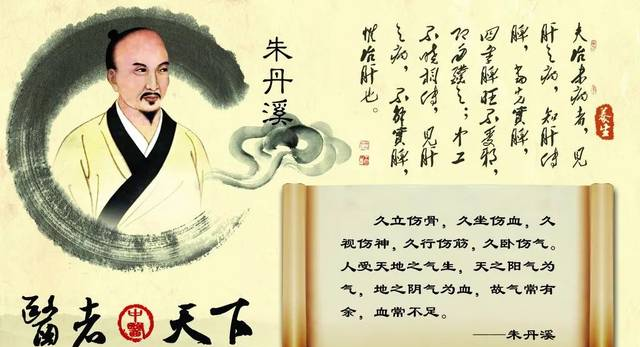 朱丹溪
夫治未病者，見
肝之病，知肝傳
脾，當先實脾，
四季脾旺不受邪，
即勿補之；中工
不曉相傳，見肝
之病，不解實脾，
惟治肝也。
養生
久立伤骨，久坐伤血，久
视伤神，久行伤筋，久卧伤气。
人受天地之气生，天之阳气为
气，地之阴气为血，故气常有
余，血常不足。
——朱丹溪
醫者中醫天下